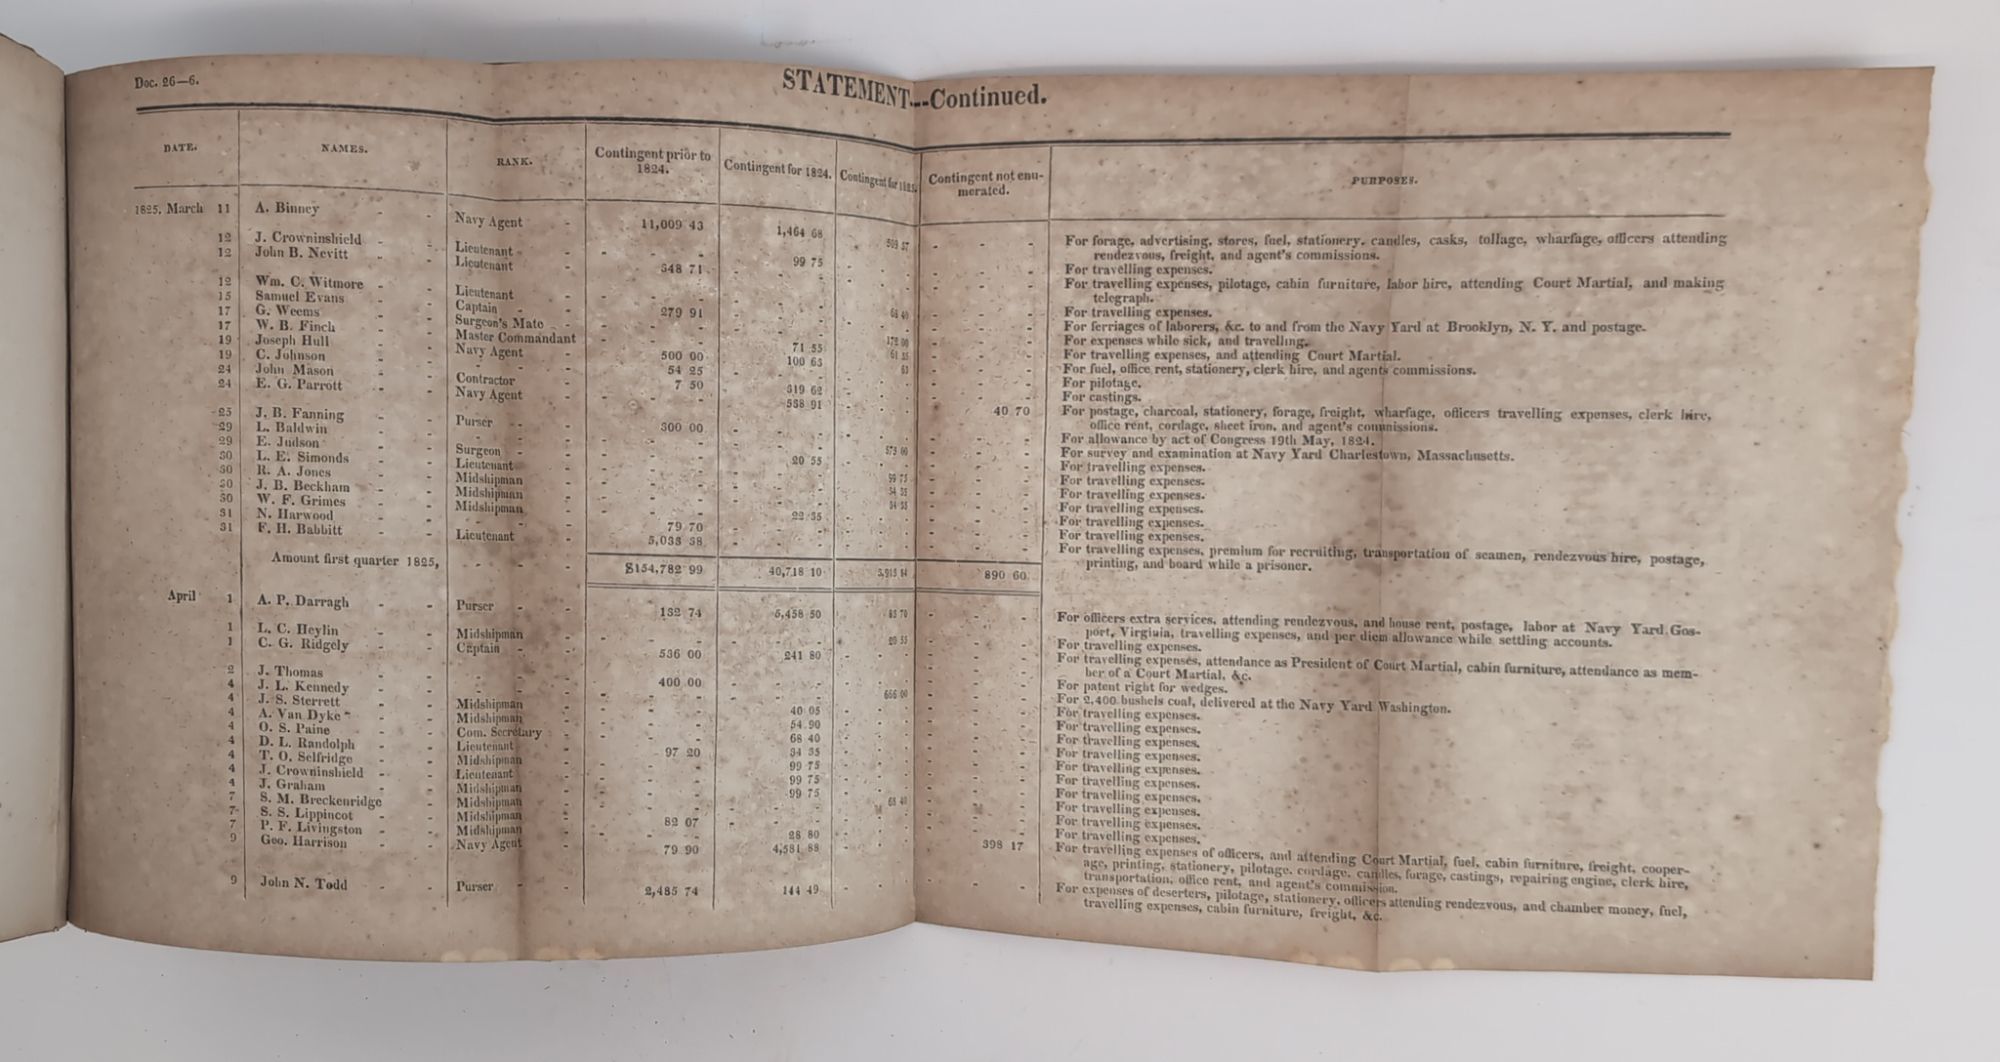 Doc. 26—6.
STATEMENT---Continued.
DATE. NAMES. RANK. Contingent prior to 1824. Contingent for 1824. Contingent for 1825. Contingent not enumerated. PURPOSES.
1825. March 11 A. Binney - - Navy Agent - 11,009 43 1,464 68 - - - For forage, advertising, stores, fuel, stationery, candles, casks, tollage, wharfage, officers attending
rendezvous, freight, and agent's commissions.
12 J. Crowninshield - - Lieutenant - - - - 99 75 - - - For travelling expenses.
12 John B. Nevitt - - Lieutenant - 348 71 - - - - - - For travelling expenses, pilotage, cabin furniture, labor hire, attending Court Martial, and making
telegraph.
12 Wm. C. Witmore - - Lieutenant - - - - - - - 68 40 - - - For travelling expenses.
15 Samuel Evans - - Captain - - 279 91 - - - - - - For ferriages of laborers, &c. to and from the Navy Yard at Brooklyn, N. Y. and postage.
17 G. Weems - - Surgeon's Mate - - - - - - - 172 00 - - - For expenses while sick, and travelling.
17 W. B. Finch - - Master Commandant - - - 71 55 - - - For travelling expenses, and attending Court Martial.
19 Joseph Hull - - Navy Agent - 500 00 100 63 63 - - - For fuel, office rent, stationery, clerk hire, and agents commissions.
19 C. Johnson - - - - 54 25 - - - - - - For pilotage.
24 John Mason - - Contractor - 7 50 319 62 - - - For castings.
24 E. G. Parrott - - Navy Agent - - - - 538 91 - - 40 70 For postage, charcoal, stationery, forage, freight, wharfage, officers travelling expenses, clerk hire,
office rent, cordage, sheet iron, and agent's commissions.
25 J. B. Fanning - - Purser - - 300 00 - - - - - - For allowance by act of Congress 19th May, 1824.
29 L. Baldwin - - - - - - - - - - - - - For survey and examination at Navy Yard Charlestown, Massachusetts.
29 E. Judson - - Surgeon - - - - - 20 55 - - - For travelling expenses.
30 L. E. Simonds - - Lieutenant - - - - - - - 99 75 - - - For travelling expenses.
30 R. A. Jones - - Midshipman - - - - - - - 34 35 - - - For travelling expenses.
30 J. B. Beckham - - Midshipman - - - - - - - - - - For travelling expenses.
30 W. F. Grimes - - Midshipman - - - - 22 35 - - - For travelling expenses.
31 N. Harwood - - - - 79 70 - - - - - - For travelling expenses.
31 F. H. Babbitt - - Lieutenant - 5,033 38 - - - - - - For travelling expenses, premium for recruiting, transportation of seamen, rendezvous hire, postage,
printing, and board while a prisoner.
Amount first quarter 1825, - - - $154,782 99 40,718 10 890 60
April 1 A. P. Darragh - - Purser - - 132 74 5,458 50 - - - For officers extra services, attending rendezvous, and house rent, postage, labor at Navy Yard Gos-
port, Virginia, travelling expenses, and per diem allowance while settling accounts.
1 L. C. Heylin - - Midshipman - - - - - - - - - - For travelling expenses.
1 C. G. Ridgely - - Captain - - 536 00 241 80 - - - For travelling expenses, attendance as President of Court Martial, cabin furniture, attendance as mem-
ber of a Court Martial, &c.
2 J. Thomas - - - - - 400 00 - - - - - - For patent right for wedges.
4 J. L. Kennedy - - - - - - - - - - 666 00 - - - For 2,400 bushels coal, delivered at the Navy Yard Washington.
4 J. S. Sterrett - - Midshipman - - - - 40 05 - - - For travelling expenses.
4 A. Van Dyke - - Midshipman - - - - 54 90 - - - For travelling expenses.
4 O. S. Paine - - Com. Secretary - - - - 68 40 - - - For travelling expenses.
4 D. L. Randolph - - Lieutenant - 97 20 34 35 - - - For travelling expenses.
4 T. O. Selfridge - - Midshipman - - - - 99 75 - - - For travelling expenses.
4 J. Crowninshield - - Lieutenant - - - - 99 75 - - - For travelling expenses.
4 J. Graham - - Midshipman - - - - 99 75 - - - For travelling expenses.
7 S. M. Breckenridge - Midshipman - - - - - - - 68 40 - - - For travelling expenses.
7 S. S. Lippincot - - Midshipman - 82 07 - - - - - - For travelling expenses.
7 P. F. Livingston - - Midshipman - - - - 28 80 - - - For travelling expenses.
9 Geo. Harrison - - Navy Agent - 79 90 4,581 88 - - 398 17 For travelling expenses of officers, and attending Court Martial, fuel, cabin furniture, freight, cooper-
age, printing, stationery, pilotage, cordage, candles, forage, castings, repairing engine, clerk hire,
transportation, office rent, and agent's commission.
9 John N. Todd - - Purser - - 2,485 74 144 49 - - - For expenses of deserters, pilotage, stationery, officers attending rendezvous, and chamber money, fuel,
travelling expenses, cabin furniture, freight, &c.